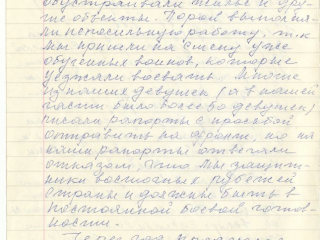 обустраивали жилье и дру-
гие объекты. Порой выполня-
ли непосильную работу, т.к
мы пришли на смену уже
обученных воинов, которые
уезжали воевать. Многие
из наших девушек (а в нашей
части было всего 60 девушек)
писали рапорты с просьбой
отправить на фронт, но на
наши рапорты отвечали
отказом, что мы защит-
ники восточных рубежей
страны и должны быть в
постоянной боевой готов-
ности.
Через год